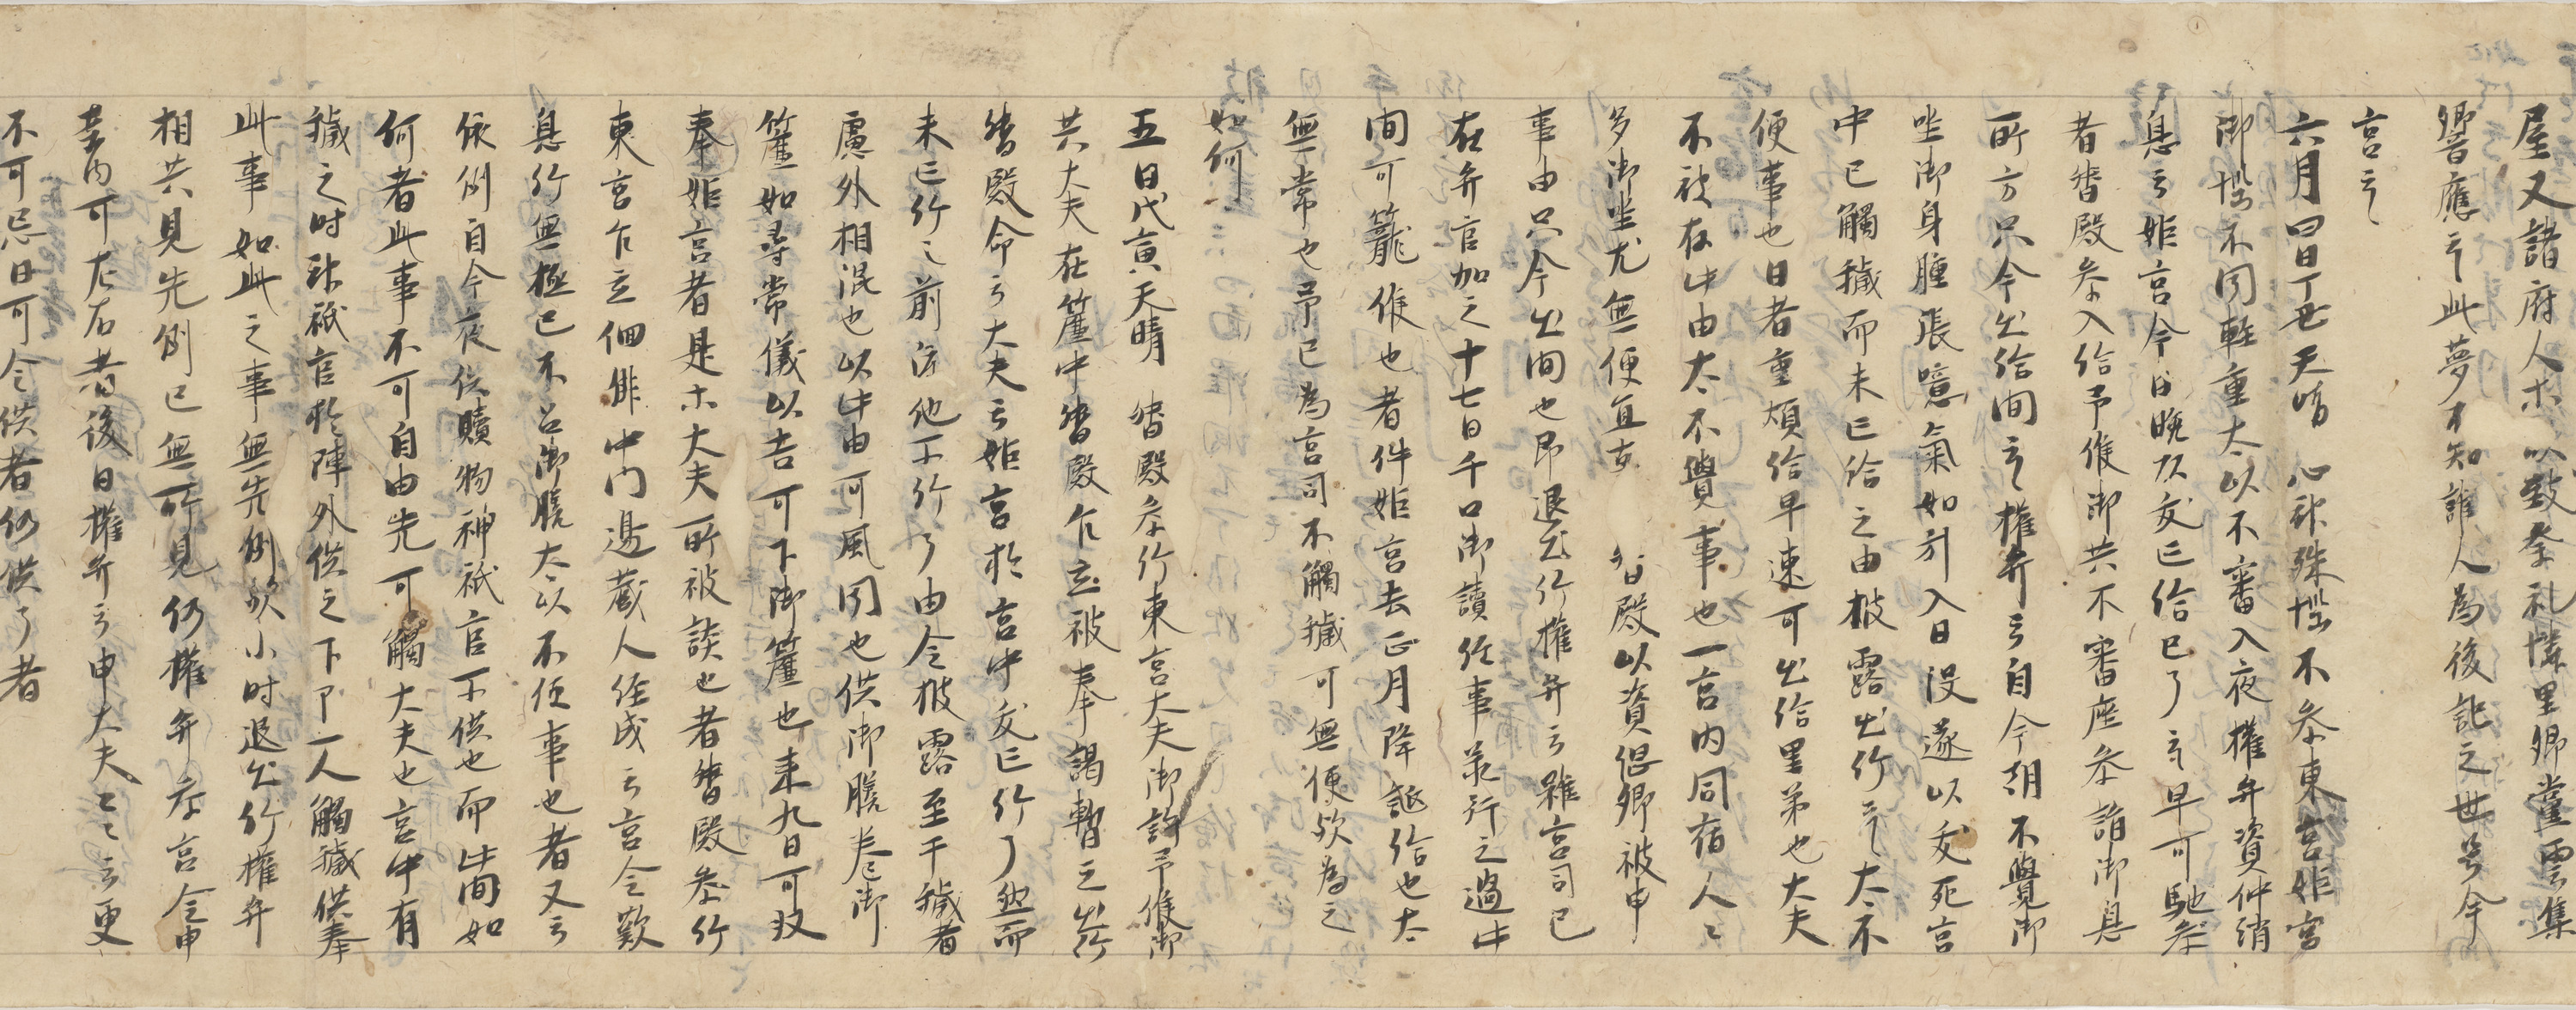 屋又諸府人ホ以数拳礼憐里卿堂雲集
響應云此夢不知誰人為後記之世号今
宮云
六月四日丁丑天晴 心神殊悩不参東宮姫宮
御悩不同軽重太以不審入夜権弁資仲消
息云姫宮今日晩頃交亡給已了云早可馳参
者督殿参入給予候御共不審座参詣御息
所方只今出給間云権弁云自今朝不覺御
坐御身腫張噫氣如引入日没遂以夭死宮
中已觸穢而未亡給之由披露出行云太不
便事也日者重煩給早速可出給里弟也大夫
不被存此由太不覺事也一宮内同宿人々
多御坐尤無便宜 督殿以資仲卿被申
事由只今出間也即退出行権弁云雖宮司已
在弁官加之十七日千口御讀経事等行之過此
間可籠候也者件姫宮去正月降誕給也太
無常也予已為宮司不觸穢可無便欤為之
如何
五日戊寅天晴 督殿参行東宮大夫御許予候御
共大夫在簾中督殿乍立被奉謁暫之出行
督殿命云大夫云姫宮於宮中交亡行了然而
未亡行之前渡他所行了由令披露至于穢者
慮外相混也以此由可風聞也供御膳巻御
簾如尋常儀以吉可下御簾也来九日可奴
奉姫宮者是ホ大夫所被談也者督殿参行
東宮乍立徊俳中門邊蔵人経成云宮令歎
息行無極已不召御膳太以不便事也者又云
依例自今夜供贖物神祇官不供也而此間如
何者此事不可自由先可觸大夫也宮中有
穢之時神祇官於陣外供之下了一人觸穢供奉
此事如此之事無先例欤小時退出行権弁
相共見先例已無所見仍権弁参宮令申
案内可左右者後日権弁云申大夫々々云更
不可忌日可令供者仍供了者